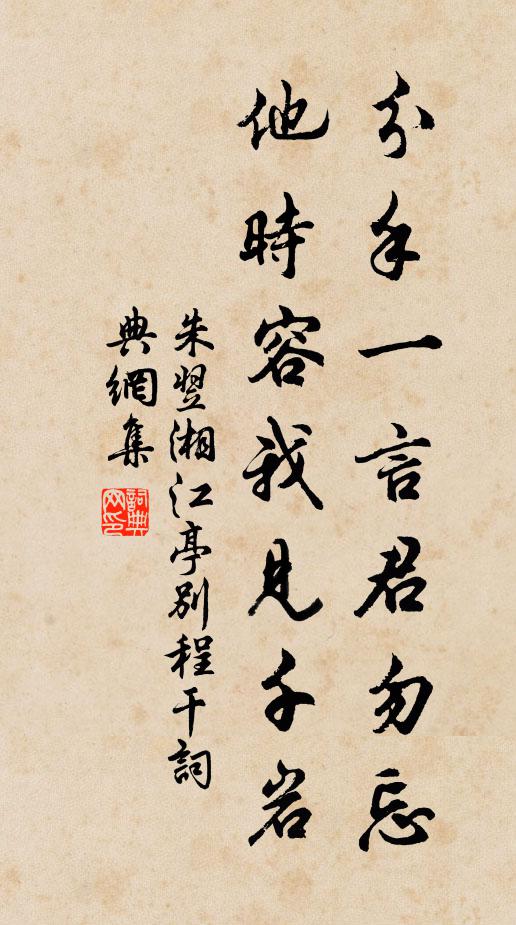 分手一言君勿忘
他時容我見千岩
朱翌湘江亭别程干詞
典網集
詞典網印